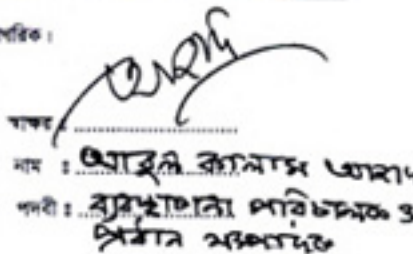 গরিক।
স্বাক্ষর : ....................
নাম : আবুল কালাম আজাদ
পদবী : ব্যবস্থাপনা পরিচালক ও
প্রধান সম্পাদক